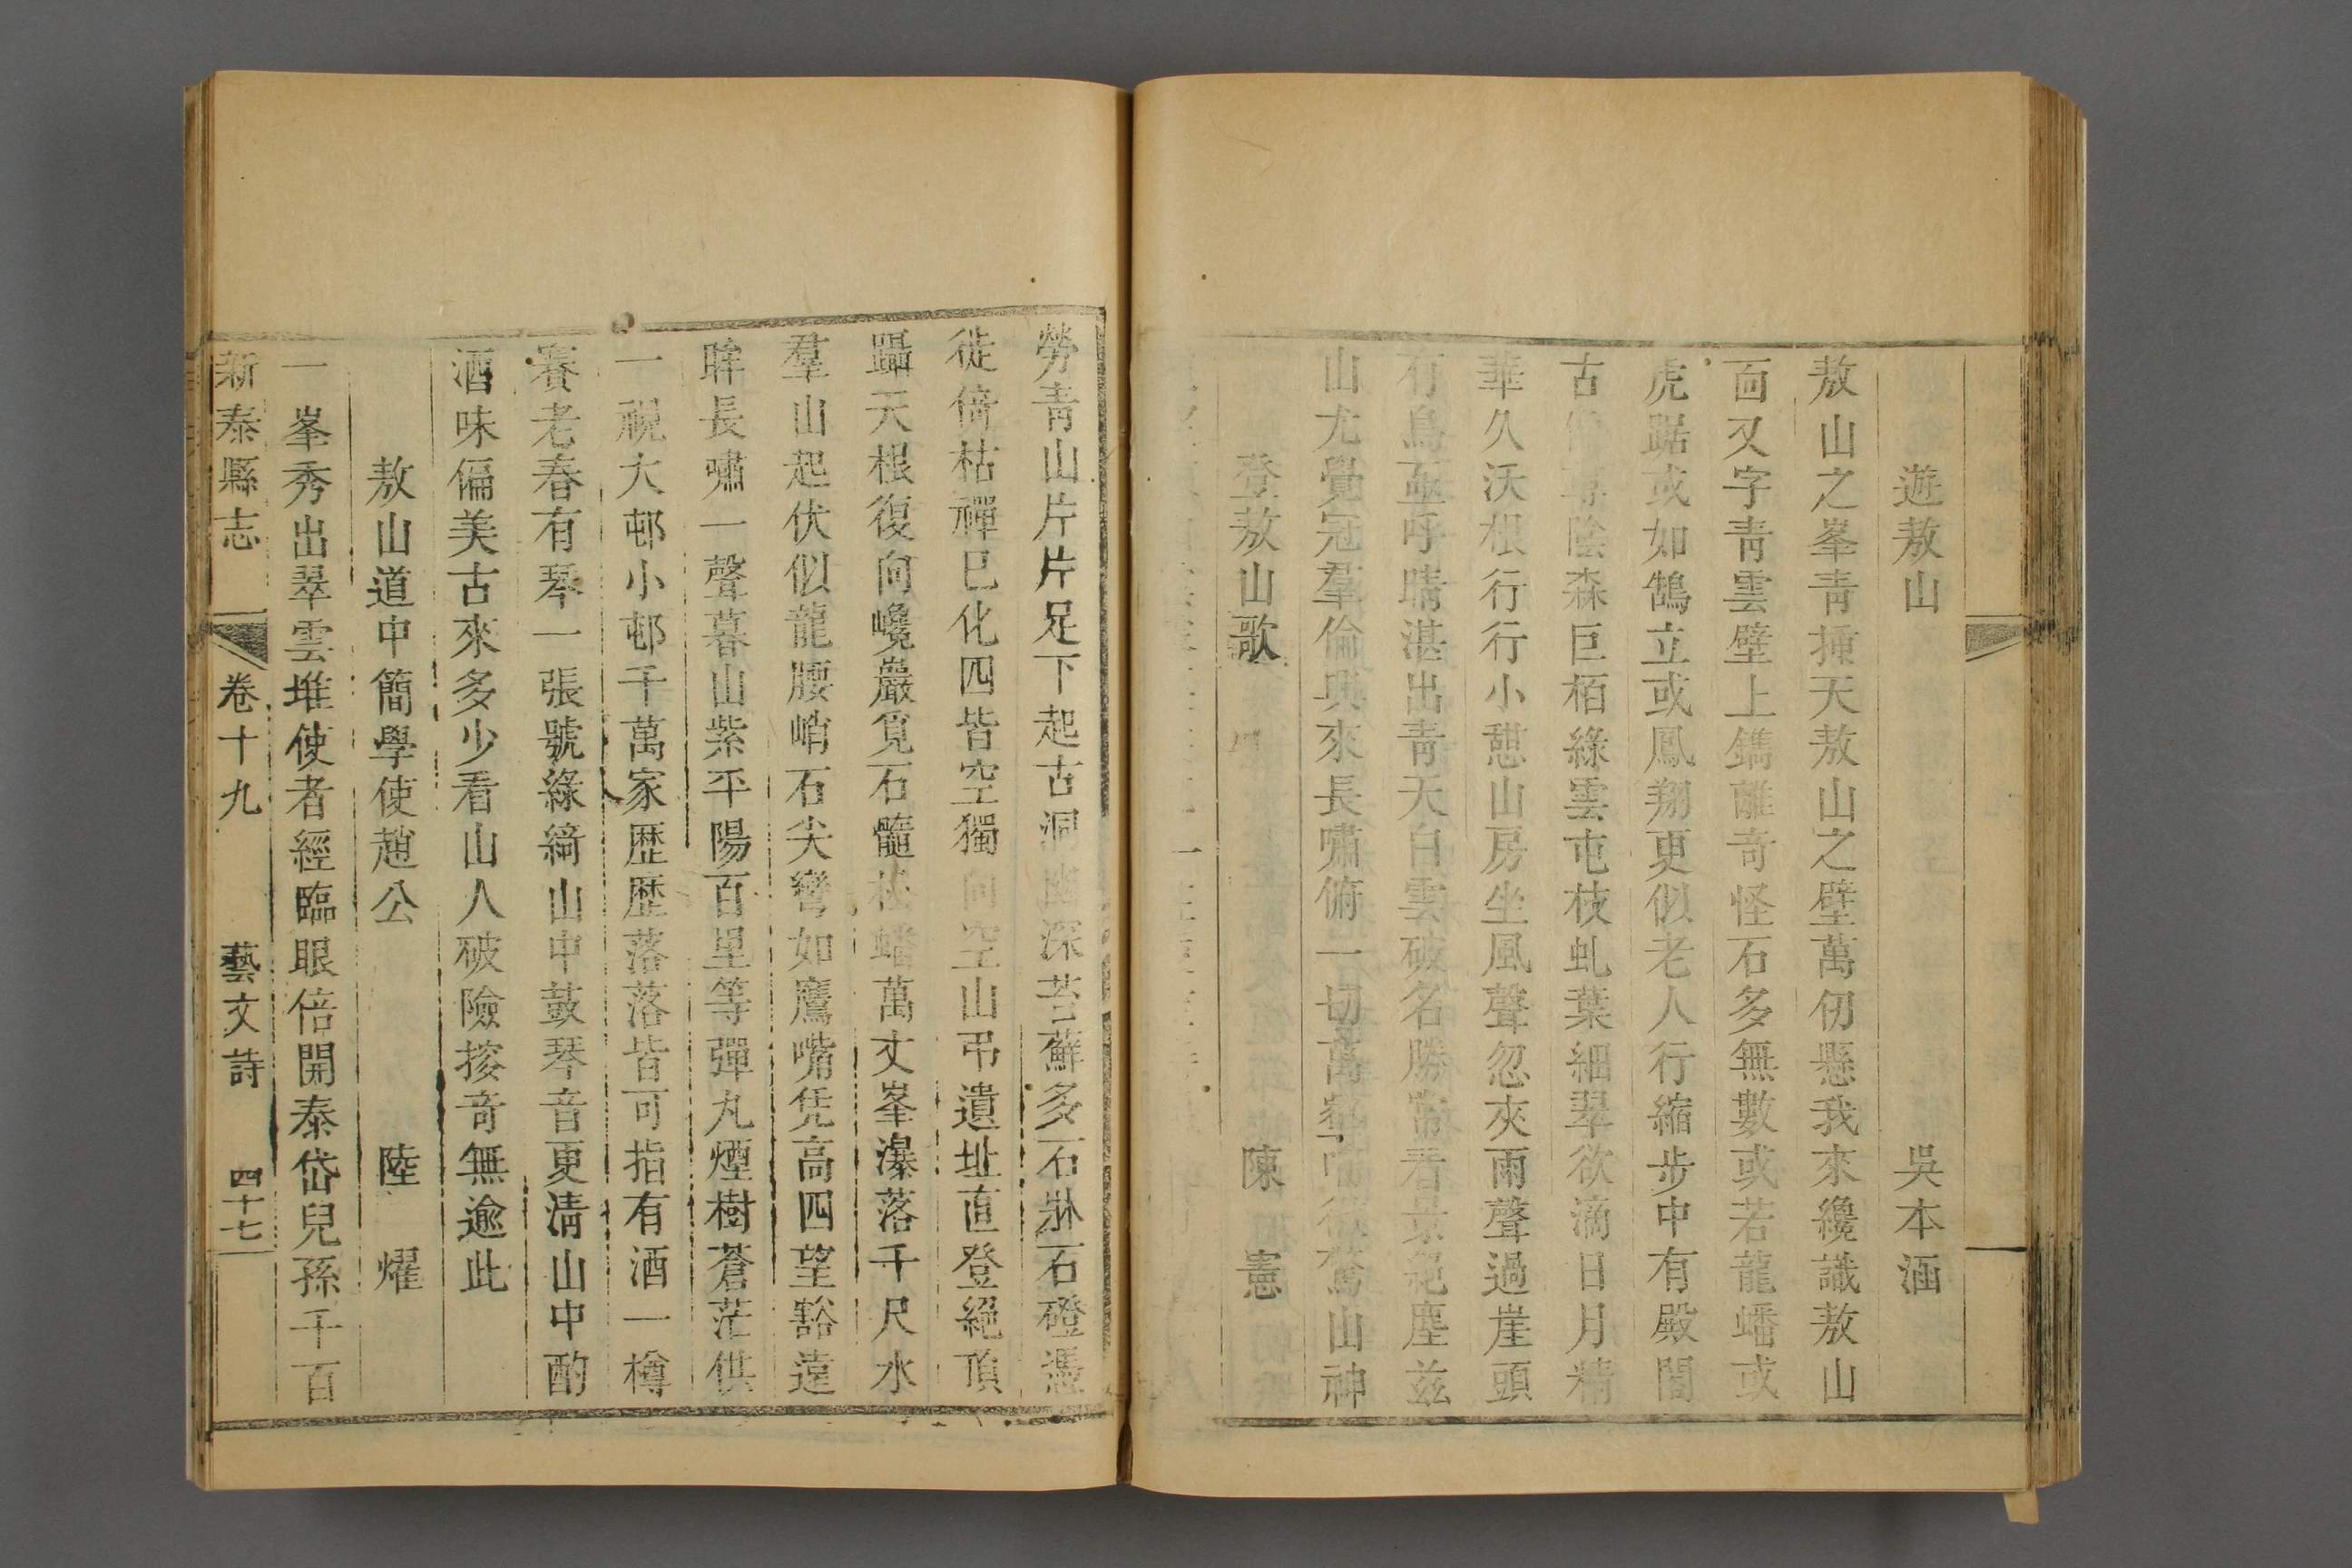 遊敖山 吳本涵
敖山之峯青摙天敖山之壁萬仞懸我來纔識敖山
面又字青雲壁上鐫離奇怪石多無數或若龍蟠或
虎踞或如鵠立或鳳翔更似老人行縮步中有殿閣
古 陰森巨栢綠雲屯枝虬葉細翠欲滴日月精
華久沃根行行小憩山房坐風聲忽夾雨聲過崖頭
行鳥亟呼晴湛出青天白雲破名勝 看景絕塵茲
山尤覺冠羣倫興來長嘯俯一切萬竅 山神
登敖山歌 陳憲
勞青山片片足下起古洞幽深苔蘚多石牀石磴憑
徙倚枯禪已化四皆空獨向空山弔遺址直登絕頂
躡天根復向巉巖覓石髓松蟠萬丈峯瀑落千尺水
羣山起伏似龍腰峭石尖彎如鷹嘴凭高四望豁遠
眸長嘯一聲暮山紫平陽百里等彈丸煙樹蒼茫供
一視大邨小邨千萬家歷歷落落皆可指有酒一樽
賽老春有琴一張號綠綺山中鼓琴音更清山中酌
酒味偏美古來多少看山人破險探奇無逾此
敖山道中簡學使趙公 陸燿
一峯秀出翠雲堆使者經臨眼倍開泰岱兒孫千百
新泰縣志 卷十九 藝文詩 四十七